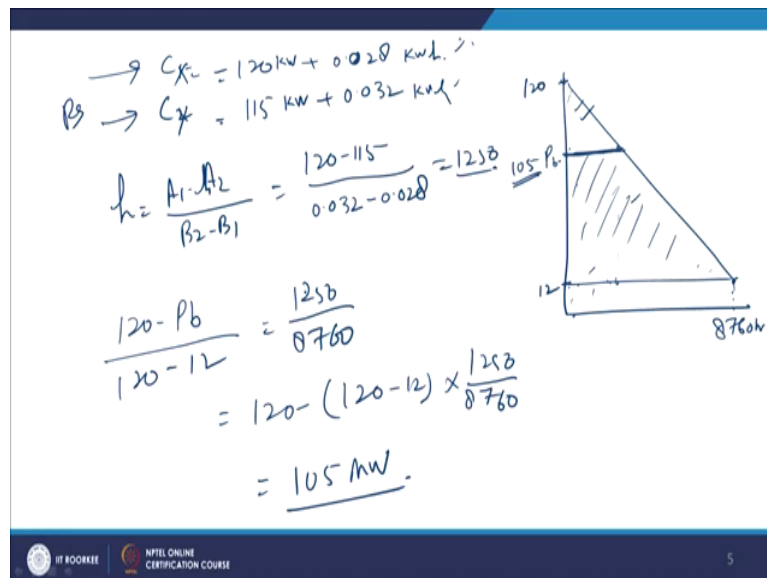 → Cx = 120 kW + 0.028 kWh
Rs → Cy = 115 kW + 0.032 kWh
h = A1-A2 / B2-B1 = 120-115 / 0.032-0.028 = 1250
120 - Pb / 120 - 12 = 1250 / 8760
= 120 - (120-12) × 1250 / 8760
= 105 MW.
120
105 Pb
12
8760hr
IIT ROORKEE
NPTEL ONLINE
CERTIFICATION COURSE
5